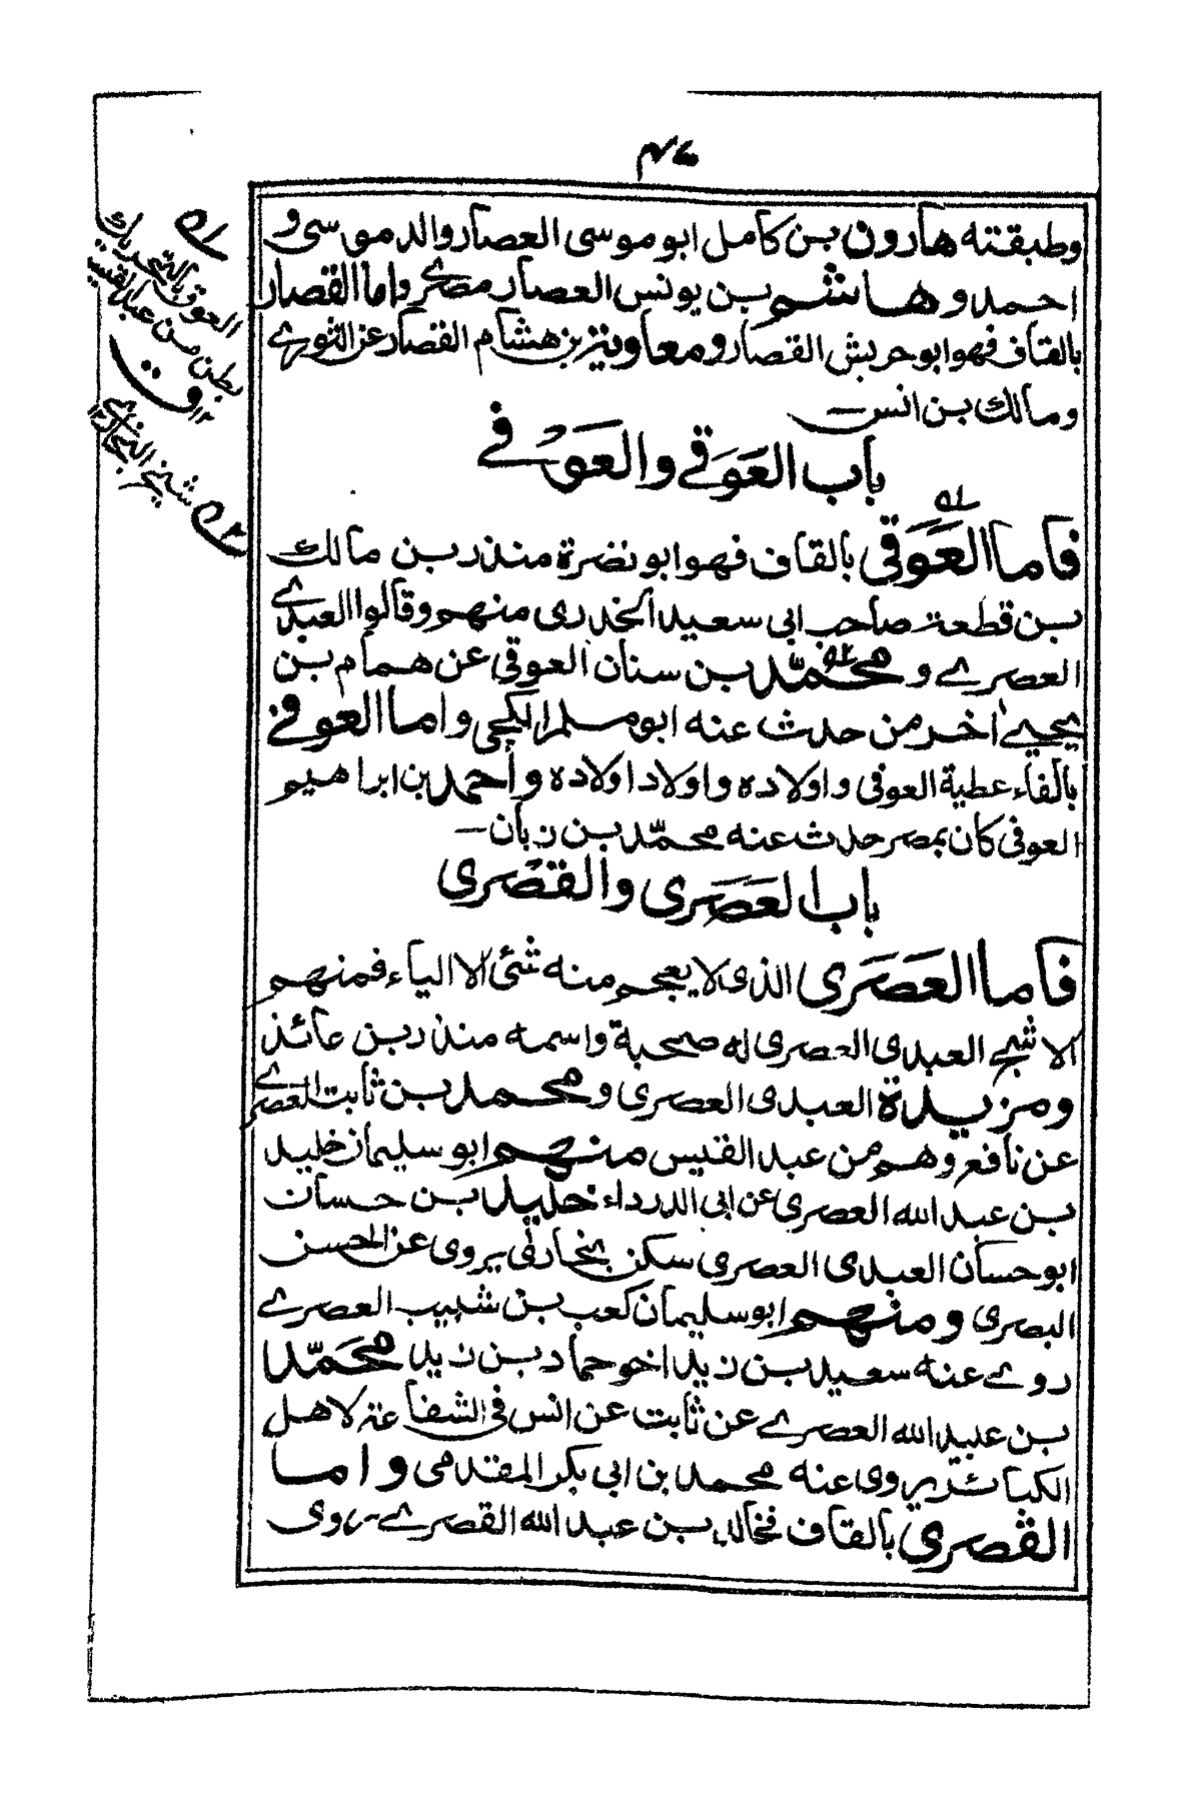 ۴۷
وطبقته هارون بن كامل ابو موسى العصار والد موسى و
احمد وهاشم بن يونس العصار مصرے واما القصار
بالقاف فهو ابو حريش القصار ومعاوية بن هشام القصار عن الثورے
ومالك بن انس —
باب العَوَقے والعَوْفے
فاما العَوَقى بالقاف فهو ابو نضرة منذر بن مالك
بن قطعة صاحب ابى سعيد الخدرى منهم وقالوا العبدے
العصرے و محمّد بن سنان العوقى عن همام بن
يحيىٰ اخر من حدث عنه ابو مسلم الكجى واما العوفے
بالفاء عطية العوفى واولاده واولاد اولاده واحمد بن ابراهيم
العوفى كان بمصر حدث عنه محمّد بن زبان —
باب العَصَرى والقَصْرى
فاما العَصَرى الذى لا يعجم منه شئى الا الياء فمنهم
الاشج العبدى العصرى له صحبة واسمه منذر بن عائذ
ومزيدة العبدى العصرى ومحمد بن ثابت العصرے
عن نافع وهم من عبد القيس منهم ابو سليمان خليد
بن عبد الله العصرى عن ابى الدرداء خليد بن حسان
ابو حسان العبدى العصرى سكن بخارى يروى عن الحسن
البصرى ومنهم ابو سليمان كعب بن شبيب العصرے
روے عنه سعيد بن زيد اخو حماد بن زيد محمّد
بن عبيد الله العصرے عن ثابت عن انس فى الشفاعة لاهل
الكبائر يروى عنه محمد بن ابى بكر المقدمى واما
القصرى بالقاف فخالد بن عبد الله القصرے يروى
ا
العوق بالتحريك
بطن من عبد القيس
۱۲ ق
۲ شيخ البخارے
۱۲